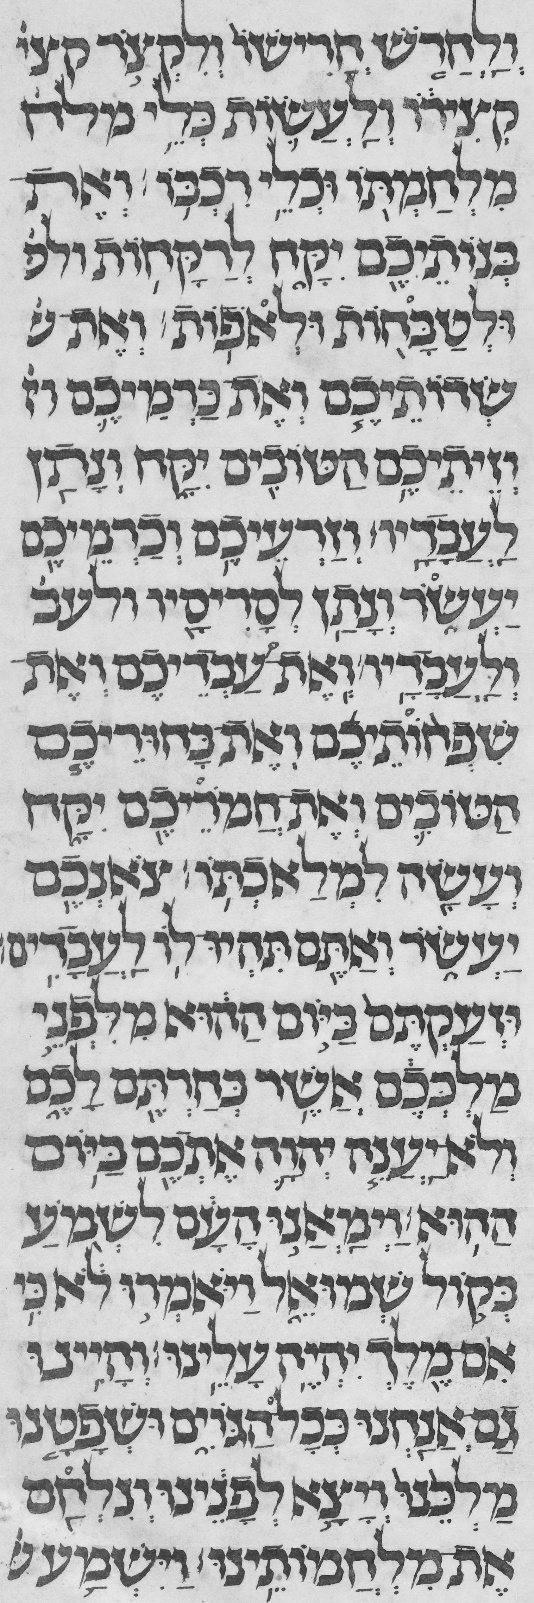 וְלַחֲרֹשׁ חֲרִישׁוֹ וְלִקְצֹר קצי
קְצִירוֹ וְלַעֲשׂוֹת כְּלֵי מלח
מִלְחַמְתּוֹ וּכְלֵי רִכְבּוֹ וְאֶת
בְּנוֹתֵיכֶם יִקָּח לְרַקָּחוֹת ולט
וּלְטַבָּחוֹת וּלְאֹפוֹת וְאֶת ש
שְׂדוֹתֵיכֶם וְאֶת כַּרְמֵיכֶם וז
וְזֵיתֵיכֶם הַטּוֹבִים יִקָּח וְנָתַן
לַעֲבָדָיו וְזַרְעֵיכֶם וְכַרְמֵיכֶם
יַעְשֹׂר וְנָתַן לְסָרִיסָיו ולעב
וְלַעֲבָדָיו וְאֶת עַבְדֵיכֶם וְאֶת
שִׁפְחוֹתֵיכֶם וְאֶת בַּחוּרֵיכֶם
הַטּוֹבִים וְאֶת חֲמֹרֵיכֶם יִקָּח
וְעָשָׂה לִמְלַאכְתּוֹ צֹאנְכֶם
יַעְשֹׂר וְאַתֶּם תִּהְיוּ לוֹ לַעֲבָדִים
וּזְעַקְתֶּם בַּיּוֹם הַהוּא מִלִּפְנֵי
מַלְכְּכֶם אֲשֶׁר בְּחַרְתֶּם לָכֶם
וְלֹא יַעֲנֶה יְהוָה אֶתְכֶם בַּיּוֹם
הַהוּא וַיְמָאֲנוּ הָעָם לִשְׁמֹעַ
בְּקוֹל שְׁמוּאֵל וַיֹּאמְרוּ לֹּא כִּי
אִם מֶלֶךְ יִהְיֶה עָלֵינוּ וְהָיִינוּ
גַם אֲנַחְנוּ כְּכָל הַגּוֹיִם וּשְׁפָטָנוּ
מַלְכֵּנוּ וְיָצָא לְפָנֵינוּ וְנִלְחַם
אֶת מִלְחֲמוֹתֵינוּ וַיִּשְׁמַע ש